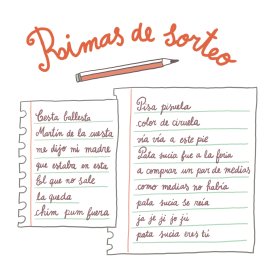 Roimas de sorteo
Cesta ballesta
Martín de la cuesta
me dijo mi madre
que estaba en esta
El que no sale
la queda
chim pum fuera
Pisa pisuela
color de ciruela
vía vía a este pie
Pata sucia fue a la feria
a comprar un par de medias
como medias no había
pata sucia se reía
ja je ji jo ju
pata sucia eres tú